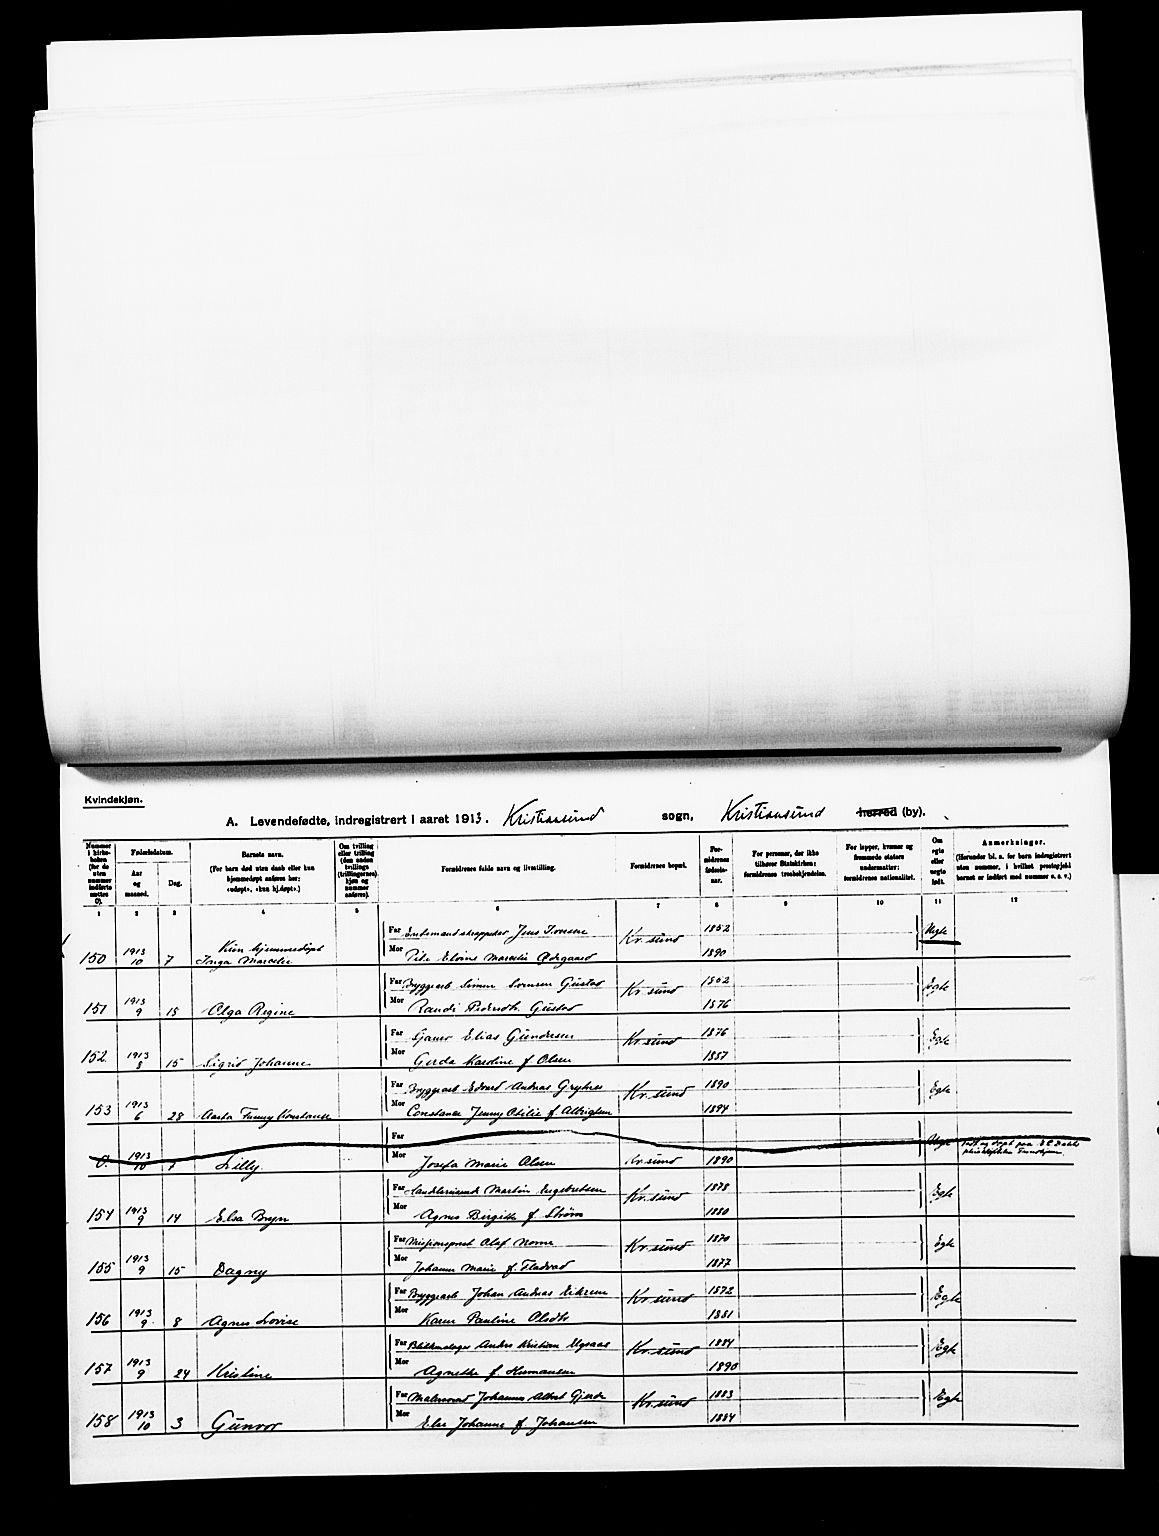 Kvindekjøn.
A. Levendefødte, indregistrert i aaret 1913. Kristiansund sogn, Kristiansund herred (by).
Nummer i kirkeboken (for de uten nummer indførte sættes 0).
Fødselsdatum.
Aar og maaned.
Dag.
Barnets navn.
(For barn død uten daab eller kun hjemmedøpt anføres her: «udøpt», «kun hj.døpt».)
Om tvilling eller trilling (den anden tvillings (trillingernes) kjøn og nummer anføres).
Forældrenes fulde navn og livsstilling.
Forældrenes bopæl.
Forældrenes fødselsaar.
For personer, der ikke tilhører Statskirken: forældrenes trosbekjendelse.
For lapper, kvæner og fremmede staters undersaatter: forældrenes nationalitet.
Om egte eller uegte født.
Anmerkninger.
(Herunder bl. a. for barn indregistrert uten nummer, i hvilket prestegjeld barnet er indført med nummer o. s. v.)
1 2 3 4 5 6 7 8 9 10 11 12
Far Jens Iversen Kr.sund 1852 Uegte
150 1913 10 7 Kun hjemmedøpt Inga Marcelie Mor Marcelie Ødegaard 1890
Far Bryggearb Simen Gustad Kr.sund 1852 Egte
151 1913 9 18 Olga Regine Mor Randi Gustad 1876
Far Elias Gundersen Kr.sund 1876 Egte
152 1913 8 15 Sigrid Johanne Mor Gerda Karoline f. Olsen 1887
Far Bryggearb Edvard Andreas Kr.sund 1890 Egte
153 1913 6 28 Aasta Fanny Konstanse Mor Constanse Jenny Otilie f. Albrigtsen 1894
Far Uegte
0. 1913 10 1 Lilly Mor Josefa Marie Olsen Kr.sund 1890
Far Handelsreisende Martin Engebretsen Kr.sund 1878 Egte
154 1913 9 14 Elsa Bryn Mor Agnes Birgitte f. Strøm 1880
Far Olaf Kr.sund 1870 Egte
155 1913 9 15 Dagny Mor Johanne Marie f. 1877
Far Bryggearb Johan Andreas Kr.sund 1872 Egte
156 1913 9 8 Agnes Lovise Mor Karen Pauline Olsdtr 1881
Far Anders Kristian Kr.sund 1884 Egte
157 1913 9 24 Kristine Mor Agnethe f. Hermansen 1890
Far Johannes Albert Gjerde Kr.sund 1883 Egte
158 1913 10 3 Gunvor Mor Else Johanne f. Johansen 1884